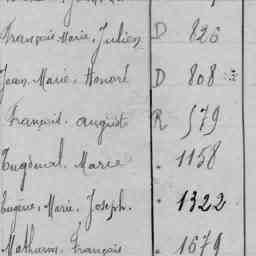 François Marie, Julien D 826
Jean, Marie, Honoré D 808
François, Auguste R 579
Tugdual, Marie " 1158
Eugène, Marie, Joseph. " 1322
Mathurin, François " 1679